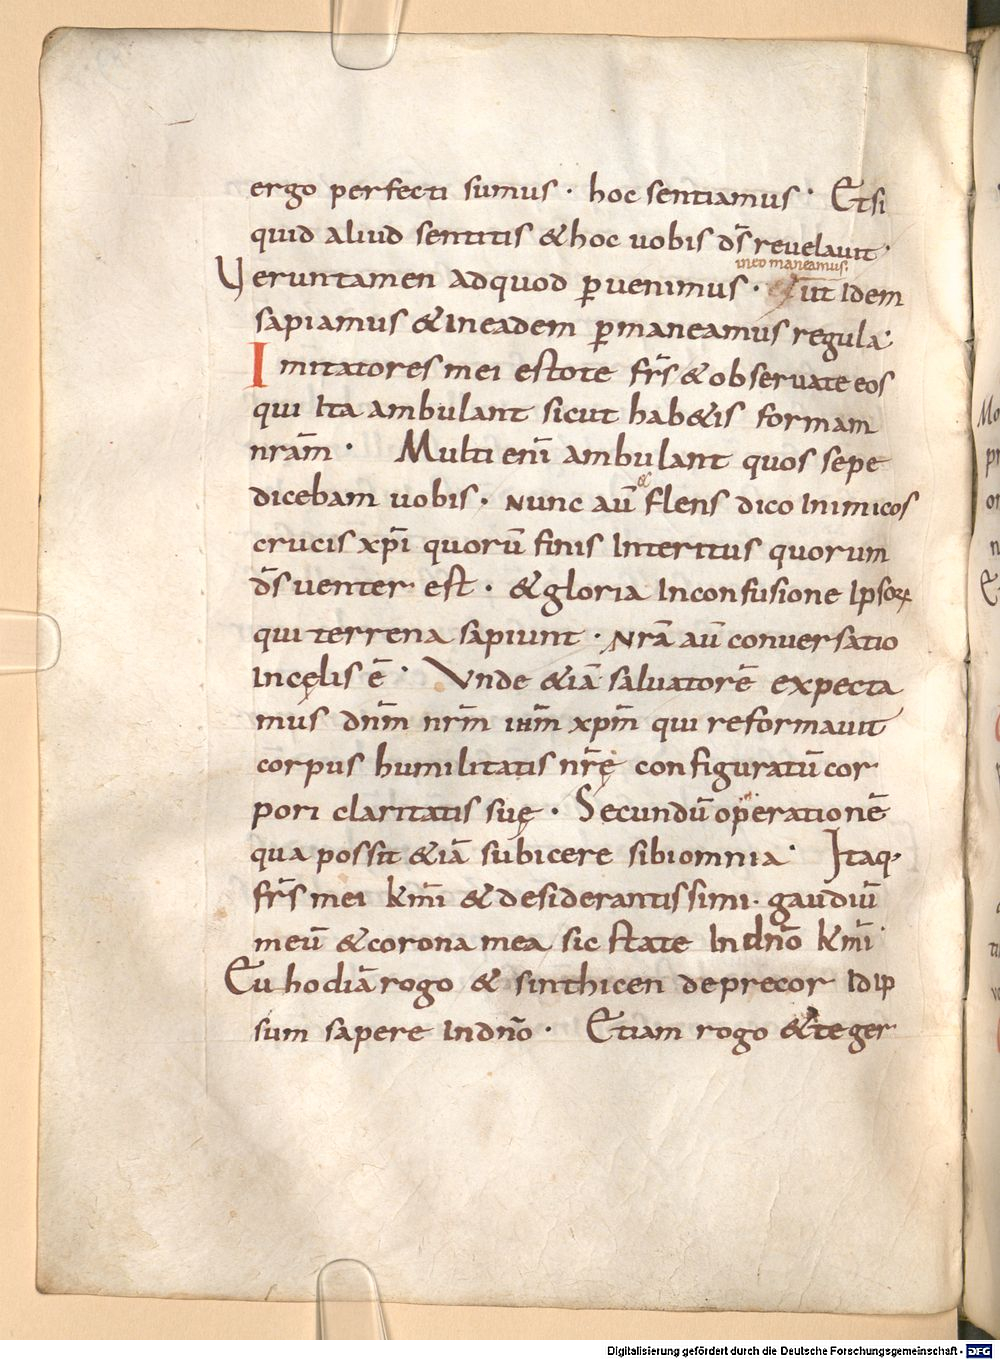 ergo perfecti sumus · hoc sentiamus · Etsi
quid aliud sentitis &hoc uobis dr̄s revelavit·
in eo maneamus.
Veruntamen adquod ꝑuenimus · ut Idem
sapiamus &Ineadem ꝑmaneamus regula·
Imitatores mei estote frs̄ &observate eos
qui Ita ambulant sicut hab&is formam
nrām · Multi enī ambulant quos sepe
&
dicebam uobis · Nunc aū flens dico Inimicos
crucis xpī quorū finis Interitus quorum
ds̄ venter est · &gloria Inconfusione Ipsoꝝ
qui terrena sapiunt · Nrā aū conversatio
Incęlis ē · Vnde &iā salvatorē expecta
mus dnm̄ nrm̄ ihm̄ xpm̄ qui reformavit
corpus humilitatis nrę̄ configuratū cor
pori claritatis suę · Secundū operationē
qua possit &iā subicere sibiomnia · Itaq·
frs̄ mei kmī &desiderantissimi · gaudiū
meū &corona mea sic state Indnō kmī·
Eu hodiā rogo & sinthicen deprecor Idip
sum sapere Indnō · Etiam rogo &te ger
Digitalisierung gefördert durch die Deutsche Forschungsgemeinschaft - DFG